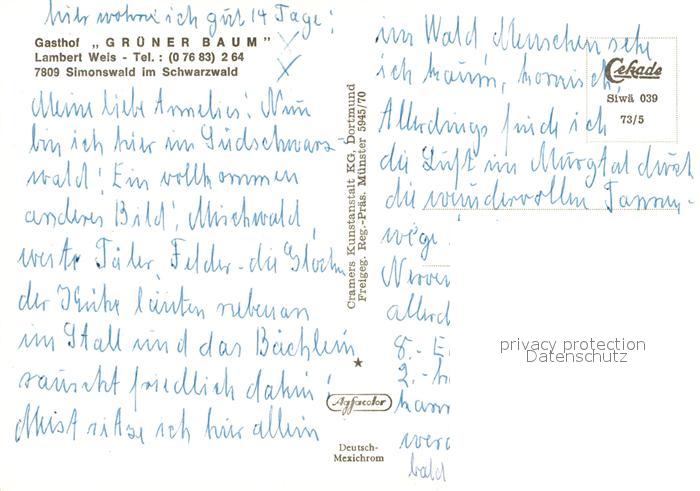 hier wohne ich gut 14 Tage!
Gasthof „GRÜNER BAUM"
Lambert Weis - Tel.: (0 76 83) 2 64
7809 Simonswald im Schwarzwald
Meine liebe Annelies! Nun
bin ich hier im Südschwarz-
wald! Ein vollkommen
anderes Bild! Mischwald,
weite Täler, Felder - die Glocken
der Kühe läuten nebenan
im Stall und das Bächlein
rauscht friedlich dahin!
Meist sitze ich hier allein
Cramers Kunstanstalt KG, Dortmund
Freigeg. Reg.-Präs. Münster 5945/70
Agfacolor
Deutsch-
Mexichrom
im Wald Menschen sehe
ich kaum, komisch,
Allerdings finde ich
die Luft im Murgtal durch
die wundervollen Tannen-
wege
Nerven
allerd
8.- E
2.-
kann
werd
bald
Cekade
Siwä 039
73/5
privacy protection
Datenschutz